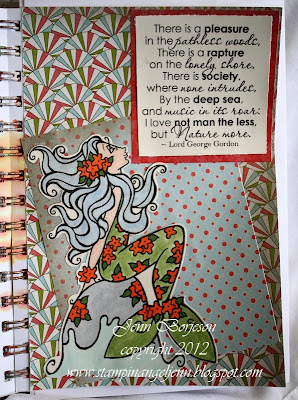 There is a pleasure
in the pathless woods,
There is a rapture
on the lonely shore,
There is society,
where none intrudes,
By the deep sea,
and music in its roar:
I love not man the less,
but Nature more.
~ Lord George Gordon
Jenn Borjeson
copyright 2012
www.stampinangeljenn.blogspot.com